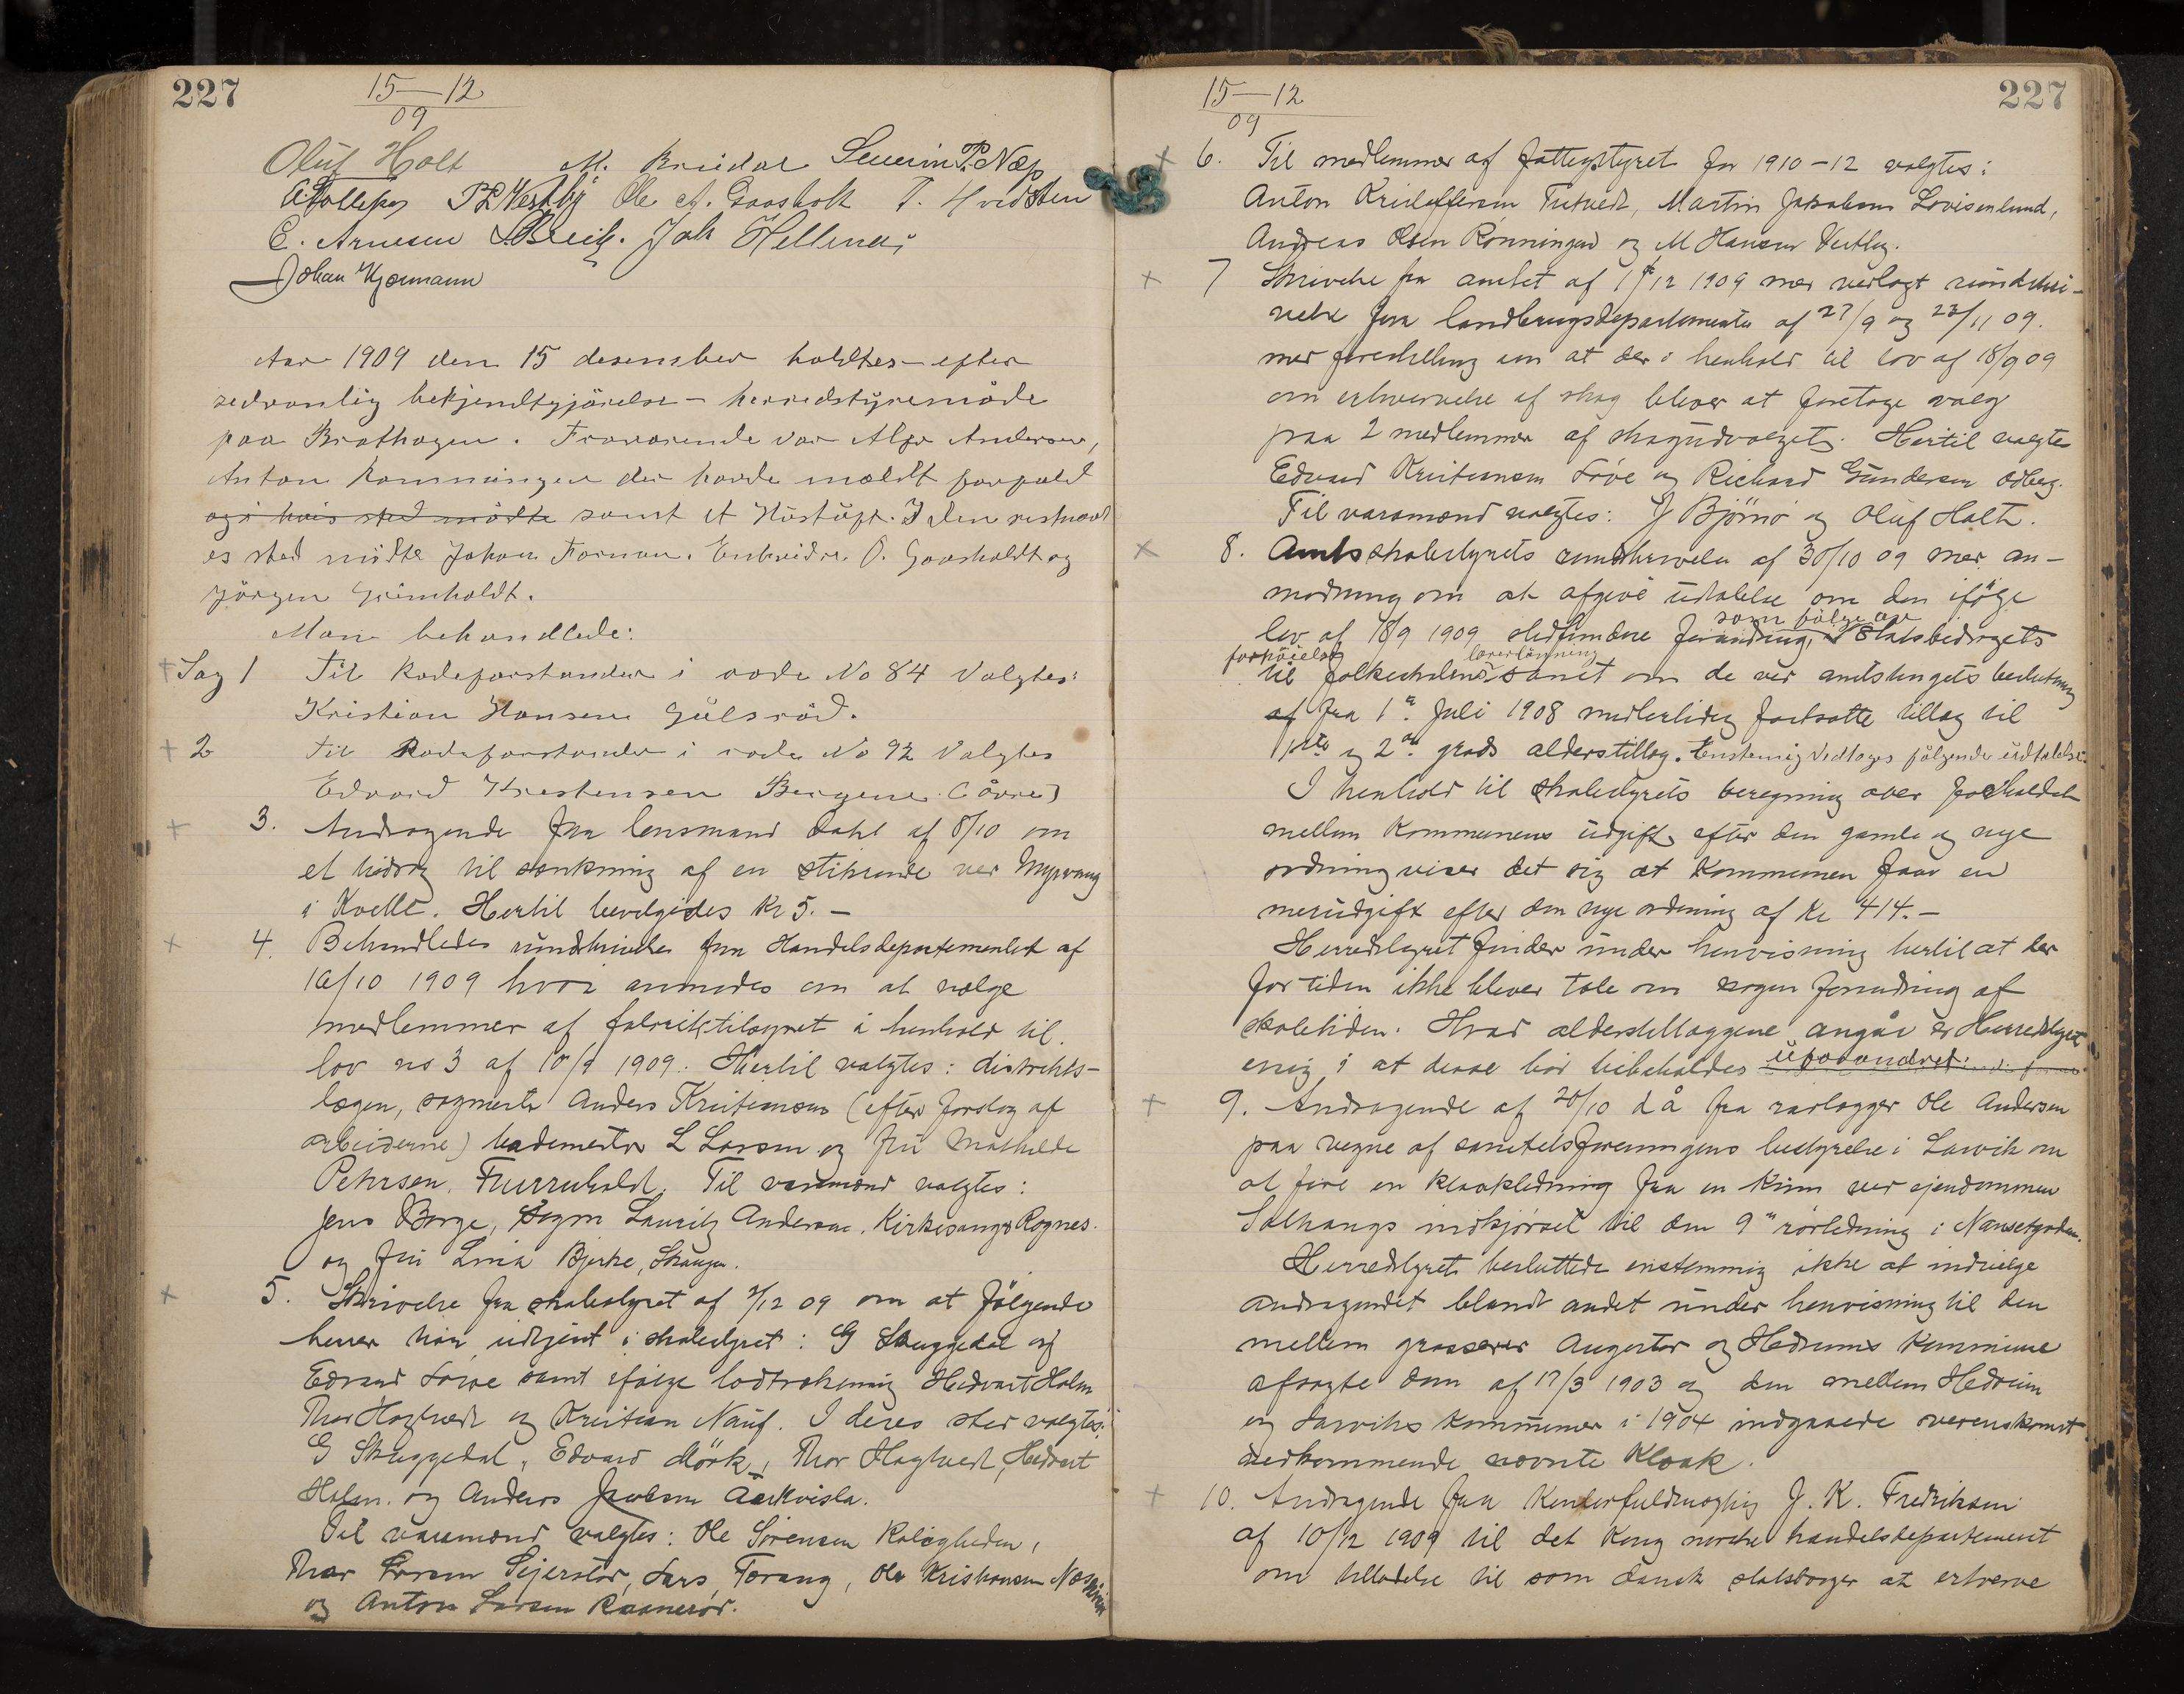 227
15—12
09
Oluf Holt M. Breidal Severin P. Næp
A Tollefsen P L Vestby Ole A. Gaasholt T. Hvidsten
E. Arnesen Joh Hellenæs
Johan Kjærmann
Aar 1909 den 15 desember holdtes efter
sedvanlig bekjendtgjörelse – herredstyremöde
paa Brathagen. Fraværende var Alfr Andersen,
Anton Rønningen der havde mældt forfald
og i hvis sted mödte samt et Hústúft. I den
es sted mödte Johan Fornæn. Enkvidre. O. Gaasholdt og
Jörgen Grimholdt.
Man behandlede:
Sag 1 Til Rodeforstander i rode No 84 Valgtes:
Kristian Hansen Gúlsröd.
2 Til Rodeforstander i rode No 92 Valgtes
Edvard Kristensen Bergene (övre)
3. Andragende fra lensmand Dahl af 8/10 om
et bidrag til sænkning af en stikrende ved Myrvang
i Kvelle. Hertil bevilgedes Kr 5.–
4. Behandledes rundskrivelse fra Handelsdepartementet af
16/10 1909 hvori anmodes om at vælge
medlemmer af fabriktilsynet i henhold til
lov no 3 af 10/9 1909. Hertil valgtes: distrikts-
lægen, sagmester Anders Kristiansen (efter forslag af
arbeiderne) bademester L Larsen og frú Mathilde
Petersen, Furruhold. Til varamænd valgtes:
Jens Borge, Sagm Lauritz Andersen, Kirkesanger Rognes.
og frú Lina Bjerke, Skaugen.
5. Skrivelse fra skolestyret af 2/12 09 om at fölgende
herrer har udtjent i skolestyret: G Skuggedal og
Edvard Löve samt ifölge lodtrækning Hedvart Holm
Thor Hagtvedt og Kristian Nauf. I deres sted valgtes:
G Skuggedal, Edvard Mörk, Thor Hagtvedt, Hedvart
Holm. og Anders Jacobsen Aarkvisla.
Til varamænd valgtes: Ole Sörensen Roligheden,
Thor Larsen Sejersted, Lars Forang, Ole Kristiansen
og Anton Larsen Raanerød.
15—12
09
227
6. Til medlemmer af fattigstyret for 1910–12 valgtes:
Anton Kristoffersen Tutvedt, Martin Jakobsen Lovisenlund,
Andreas Olsen Rønningen og M Hansen Vestby.
7 Skrivelse fra amtet af 1/12 1909 med vedlagt rundskri-
velse fra landbrugsdepartementet af 27/9 og 23/11 09.
med forestilling om at der i henhold til lov af 18/9 09
om erhvervelse af skog bliver at foretage valg
paa 2 medlemmer af skogudvalget. Hertil valgtes
Edvard Kristiansen Löve og Richard Gundersen Odberg.
Til varamænd valgtes: J Björnö og Oluf Holt.
8. Amtsskolestyrets rundskrivelse af 30/10 09 med an-
modning om at afgive udtalelse om den ifölge
lov af 18/9 1909 stedfundne forandring, som fölge av Statsbidragets
forhöielse til folkeskolens lærerlönning samt om de ved amtstingets beslutning
af fra 1te Juli 1908 midlertidig fastsatte tillæg til
1ste og 2den grads alderstillæg. Enstemig vedtoges fölgende udtalelse:
I henhold til skolestyrets beregning over forholdet
mellem Kommunens udgift efter den gamle og nye
ordning viser det sig at Kommunen faar en
merudgift efter den nye ordning af Kr 414.–
Herredstyret finder under henvisning hertil at der
for tiden ikke bliver tale om nogen forandring af
skoletiden. Hvad alderstillæggene angår er Herredstyret
enig i at disse bör bibeholdes úforandret.
9. Andragende af 20/10 d å fra rörlægger Ole Andersen
paa vegne af sanitetsforeningens bestyrelse i Larvik om
at före en kloakledning fra en kum ved ejendommen
Solhaugs indkjörsel til den 9" rörledning i Nansetgaden.
Herredstyret besluttede enstemmig ikke at indvilge
andragendet blandt andet under henvisning til den
mellem grosserer Augestad og Hedrums Kommune
afsagte dom af 17/3 1903 og den mellem Hedrum
og Larviks Kommuner i 1904 indgaaede overenskomst
vedkommende nævnte Kloak.
10. Andragende fra Kontorfuldmægtig J. K. Fredriksen
af 10/12 1909 til det Kong norske handelsdepartement
om tilladelse til som dansk statsborger at erhverve